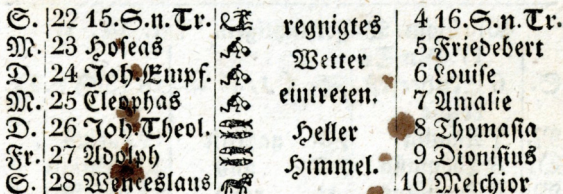 S. 22 15.S.n.Tr. regnigtes 4 16.S.n.Tr.
M. 23 Hoseas Wetter 5 Friedebert
D. 24 Joh. Empf. eintreten. 6 Louise
M. 25 Cleophas 7 Amalie
D. 26 Joh. Theol. Heller 8 Thomasia
Fr. 27 Adolph Himmel. 9 Dionisius
S. 28 Wenceslaus 10 Melchior